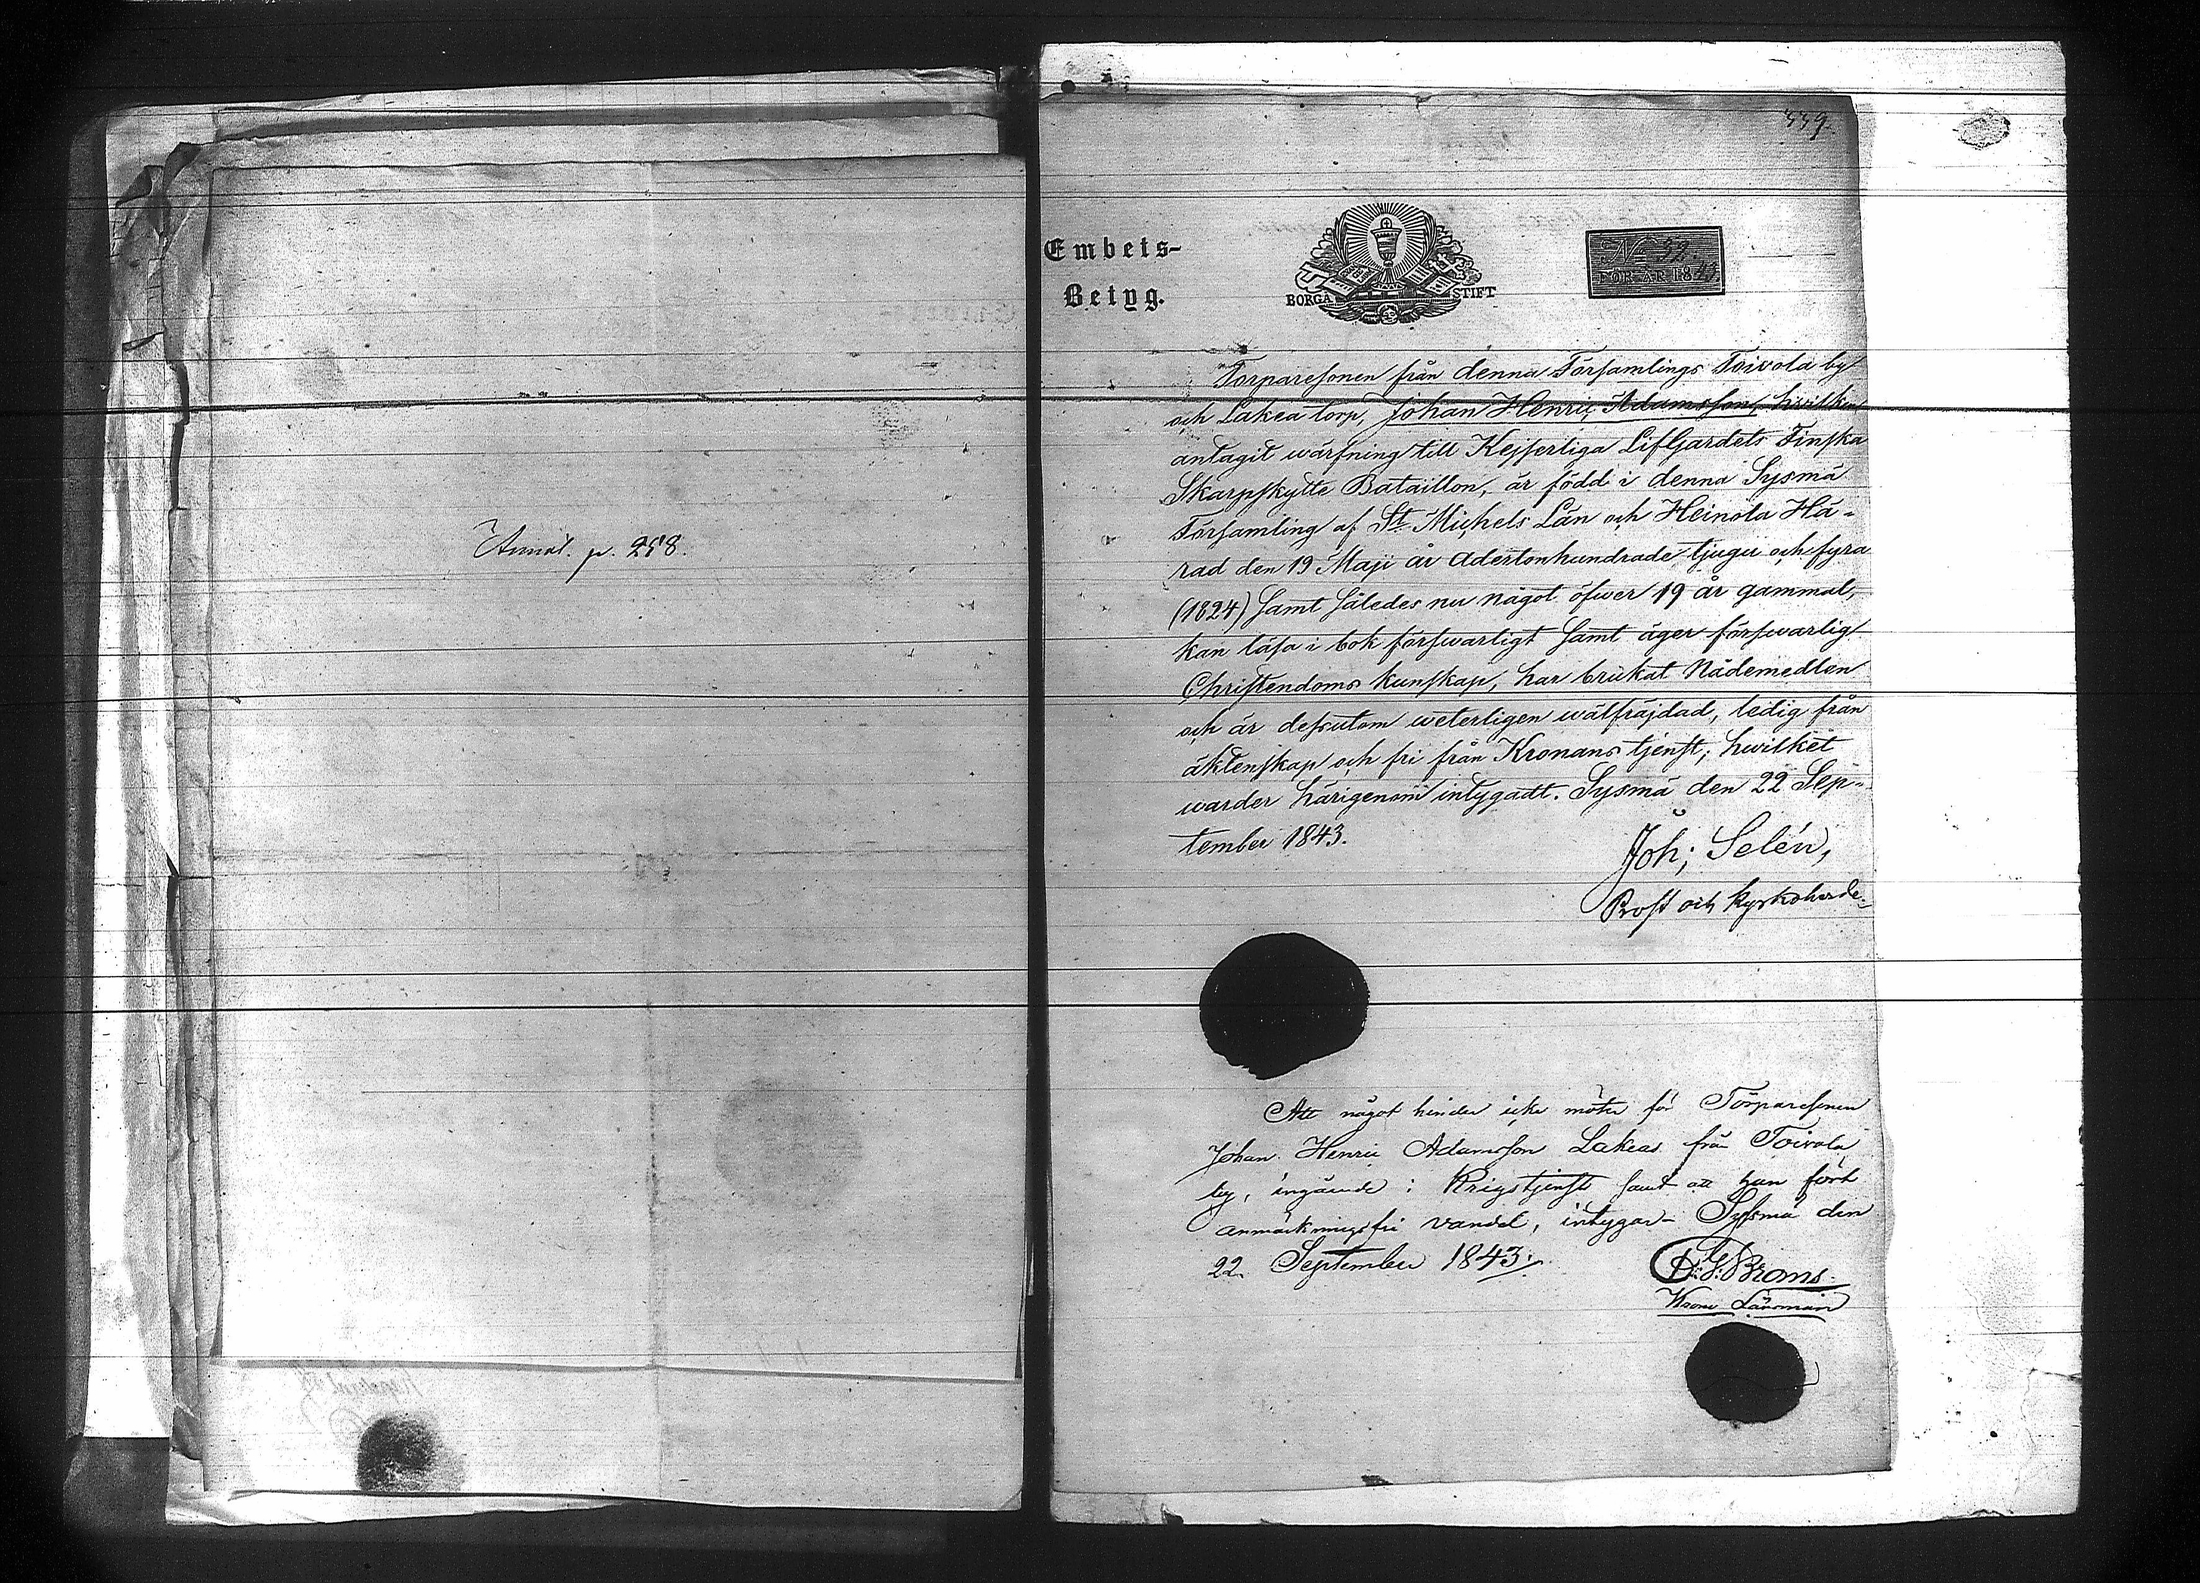 Anmäl. p. 258.
339.
Embets-
Betyg.
BORGÅ STIFT
No 32.
FÖR ÅR 1843.
Torparesonen från denna Församlings Toivola by
och Lakea torp, Johan Henric Adamsson, hvilken
antagit wärfning till Kejserliga LifGardets Finska
Skarpskytte Bataillon, är född i denna Sysmä
Församling af St. Michels Län och Heinola Hä-
rad den 19 Maji år adertonhundrade tjugu och fyra
(1824) samt således nu något öfwer 19 år gammal,
kan läsa i bok förswarligt samt äger förswarlig
Christendoms kunskap, har brukat Nådemedlen
och är dessutom weterligen wälfräjdad, ledig från
äktenskap och fri från Kronans tjenst; hwilket
warder härigenom intygadt. Sysmä den 22 Sep-
tember 1843.
Joh; Selén,
Prost och Kyrkoherde.
Att något hinder icke möter för Torparesonen
Johan Henric Adamsson Lakeas från Toivola
by, ingående i Krigstjenst samt att han fört
anmärkningsfri vandel, intygar - Sysmä den
22 September 1843.
G: Broms.
Krono Länsman